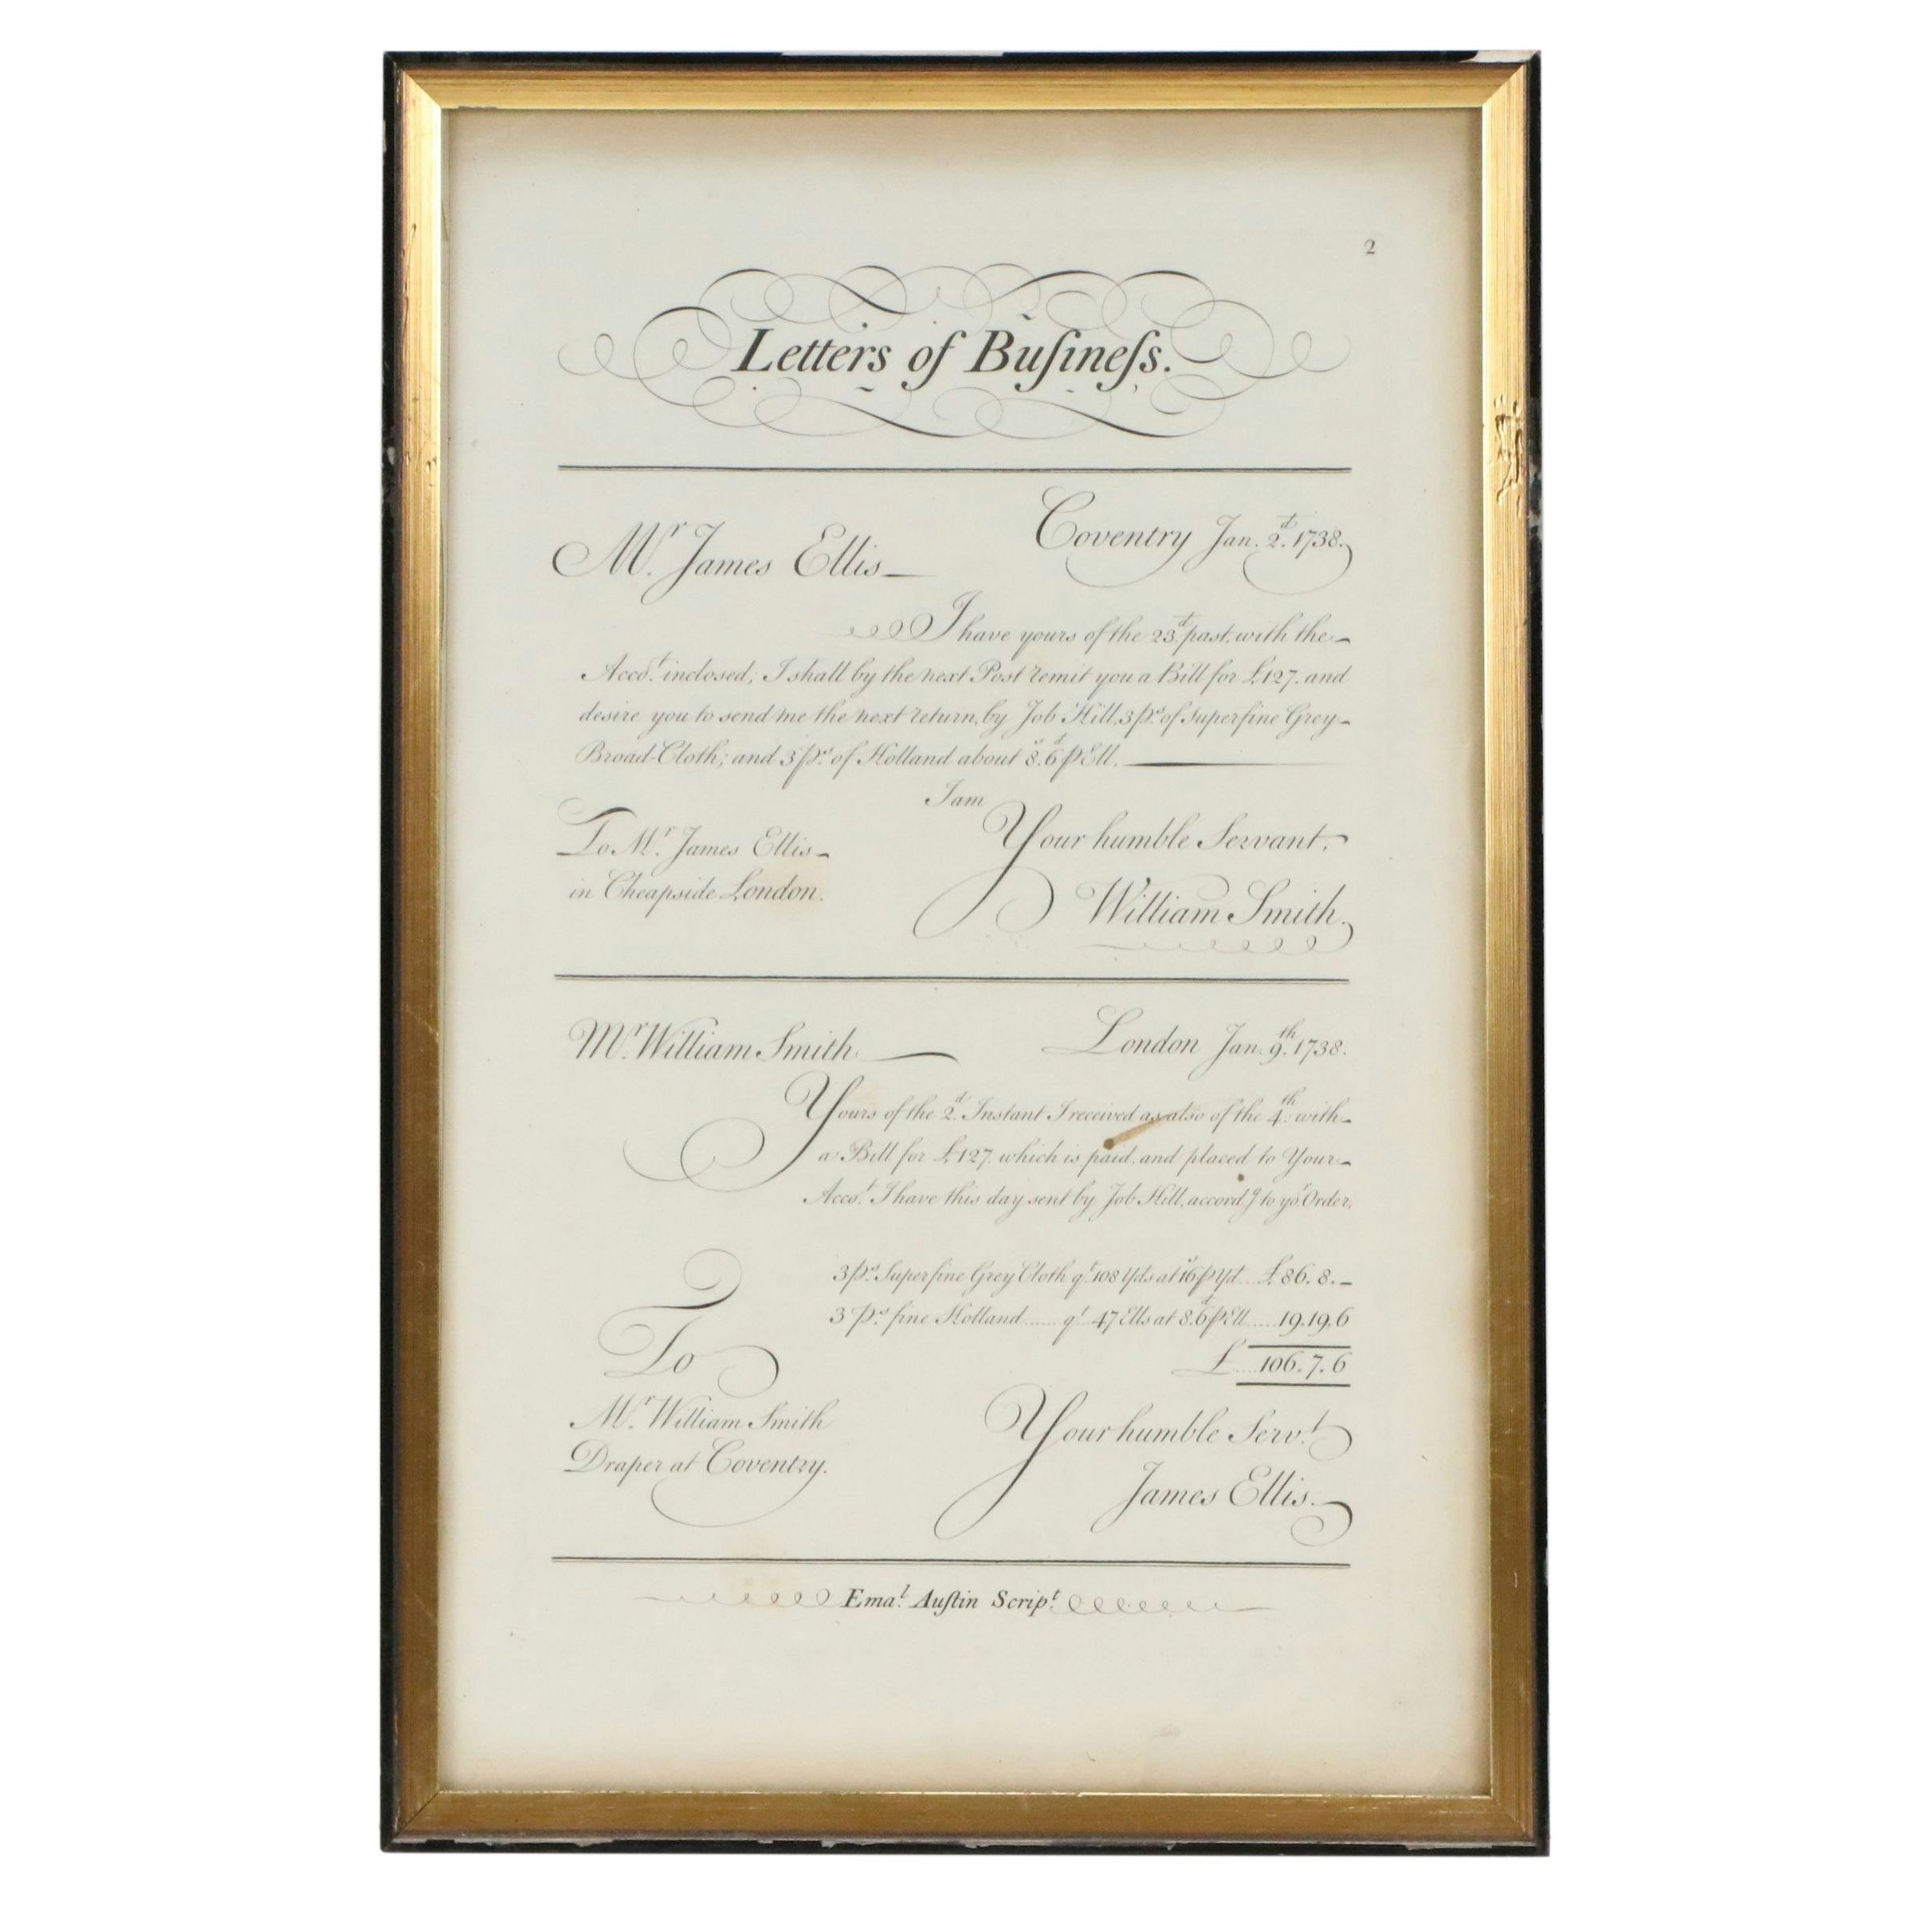 2
Letters of Buſineſs.
Coventry Jan. 2.d 1738.
M.r James Ellis
I have yours of the 23.d past, with the
Acco.t inclosed; I shall by the next Post remit you a Bill for £127. and
desire you to send me the next return, by Job Hill, 3 p.s of Superfine Grey
Broad-Cloth; and 3 p.s of Holland about 8.s 6.d p Ell.
I am
Your humble Servant,
To M.r James Ellis
in Cheapside London.
William Smith.
M.r William Smith
London Jan. 9.th 1738.
Yours of the 2.d Instant I received as also of the 4.th with
a Bill for £127. which is paid, and placed to Your
Acco.t I have this day sent by Job Hill, accord.g to yo.r Order,
3 p.s Superfine Grey Cloth q.t 108 Yds at 16s p Yd.... £86. 8. –
3 p.s fine Holland...... q.t 47 Ells at 8. 6d p Ell..... 19. 19. 6
£.... 106. 7. 6
To
M.r William Smith
Draper at Coventry.
Your humble Serv.t
James Ellis.
Ema.l Auſtin Scrip.t